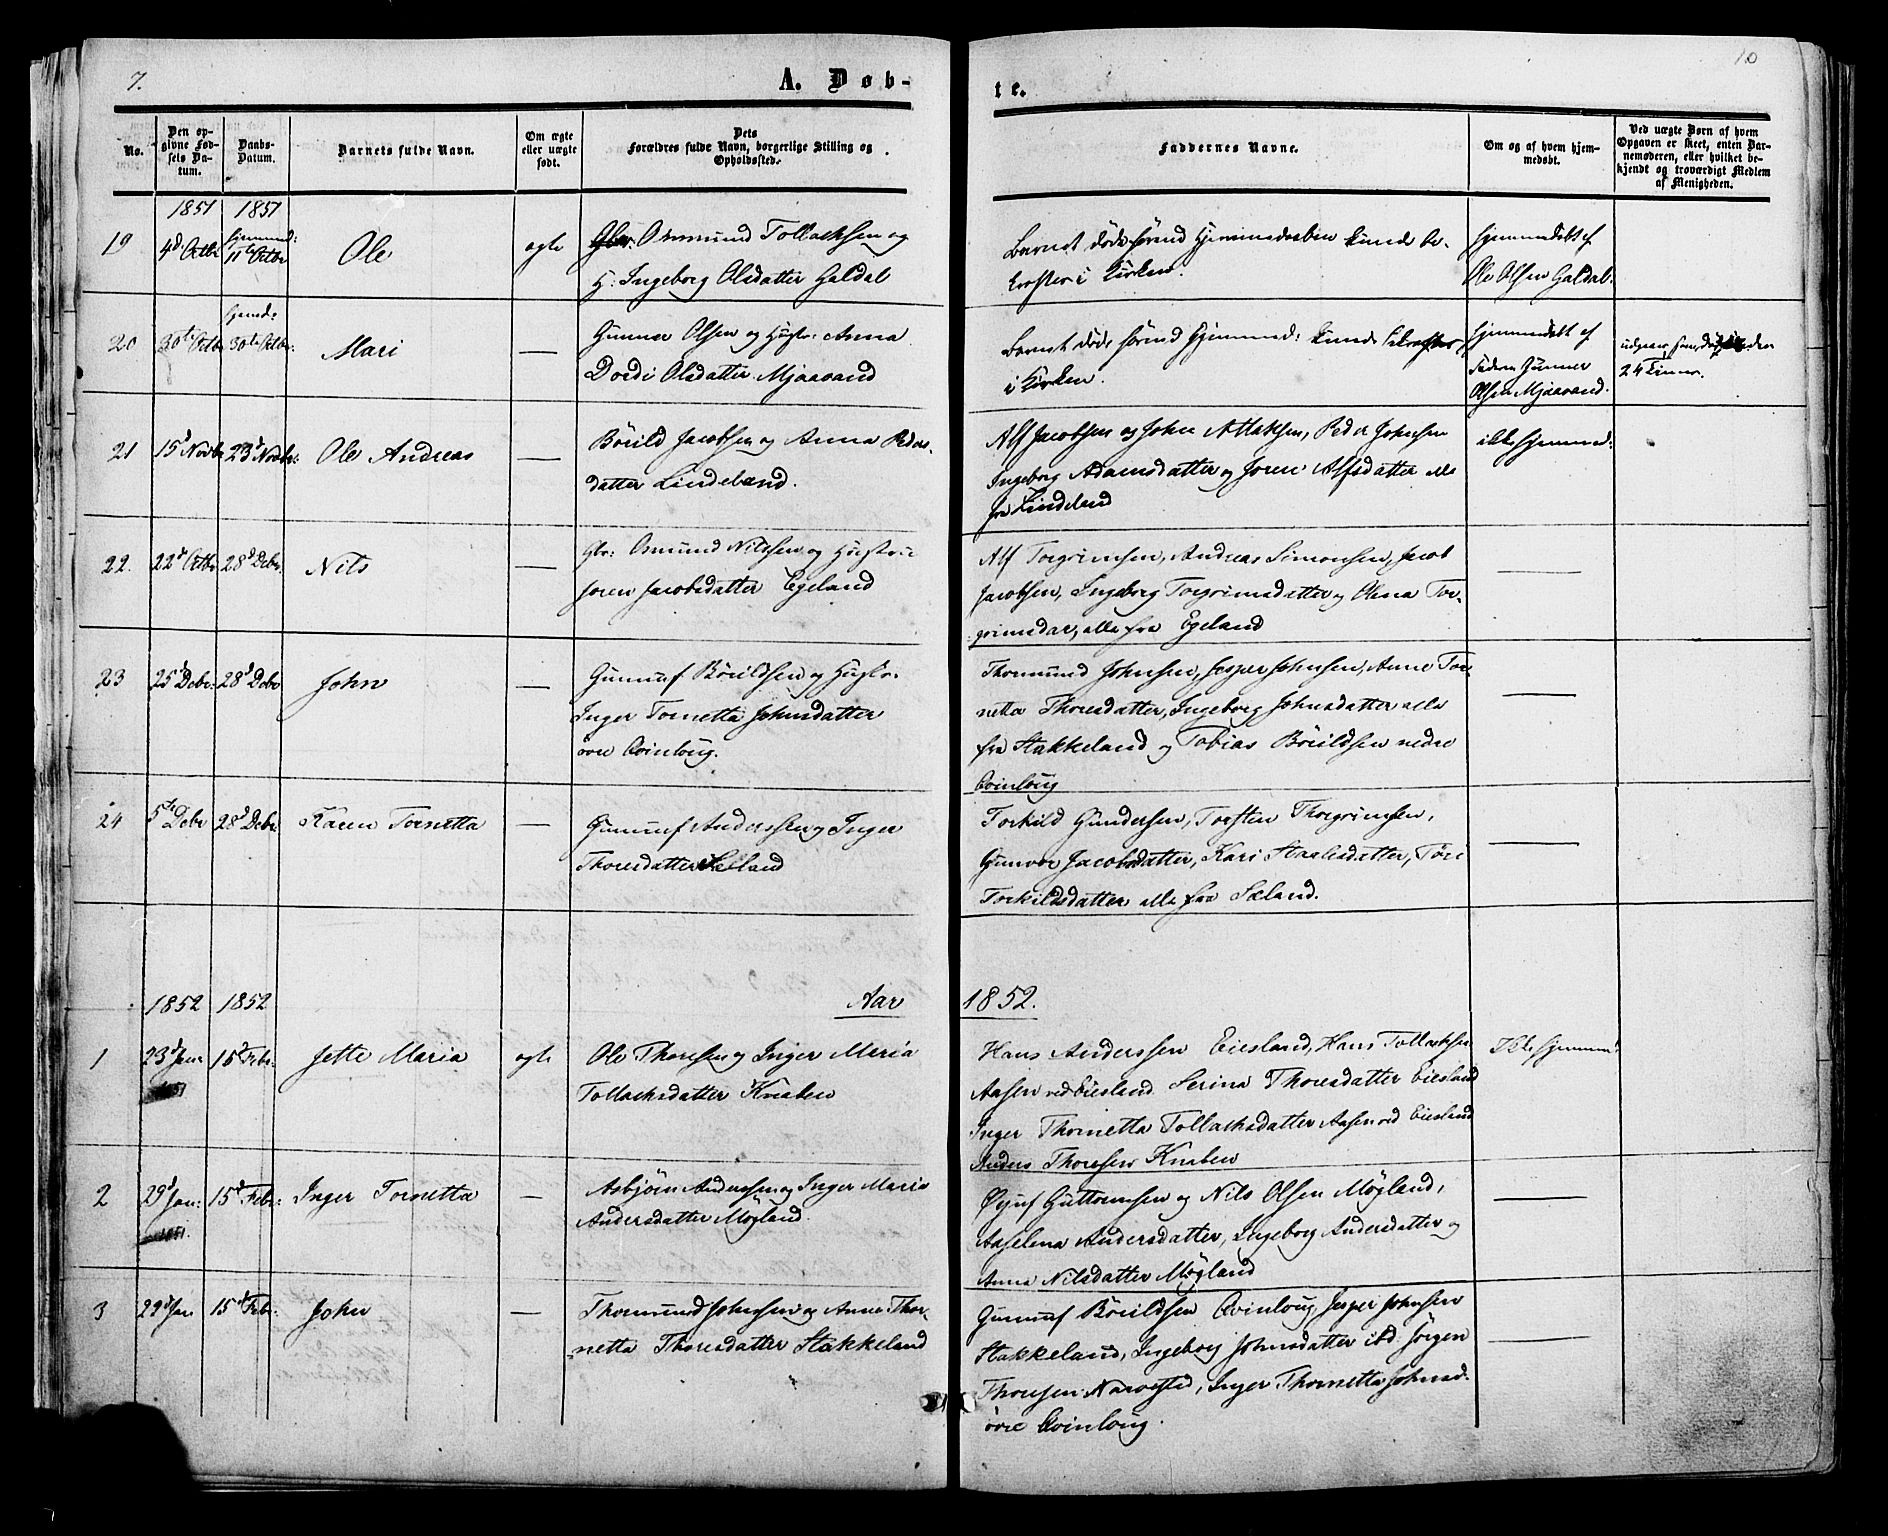 7.
A. Døb-
te.
10
No.
Den op-
givne Fød-
sels Da-
tum.
Daabs-
Datum.
Barnets fulde Navn.
Om ægte
eller uægte
født.
Dets
Forældres fulde Navn, borgerlige Stilling og
Opholdssted.
Faddernes Navne.
Om og af hvem hjem-
medøbt.
Ved uægte Børn af hvem
Opgaven er skeet, enten Bar-
nemoderen, eller hvilket be-
kjendt og troværdigt Medlem
af Menigheden.
1851 1851
19 4d Octbr hjemmed: 11te Octbr Ole ægte
Gbr: Osmund Tollachsen og
H: Ingeborg Olsdatter Galdal
Barnet døde förend Hjemmedaaben kunde be-
kræftes i Kirken.
hjemmedöbt af
Ole Olsen Galdal.
20 30te Octbr hjemd: 30te Octbr: Mari —
Gunner Olsen og Hustr: Anna
Dordi Olsdatter Mjaavand
Barnet döde förend Hjemmed: kunde bekræftes
i Kirken.
hjemmedöbt af
Faderen Gunner
Olsen Mjaavand.
24 Timer.
21 15d Novbr 23d Novbr: Ole Andreas —
Börild Jacobsen og Anna Peders-
datter Lindeland.
Alf Jacobsen og John Attaksen, Peder Johnsen
Ingeborg Adamsdatter og Joren Alfsdatter alle
fra Lindeland
ikke hjemmed:
22. 22d Octbr 28d Debr. Nils —
Gbr: Osmund Nilssen og Hustr:
Joren Jacobsdatter Egeland
Alf Torgrimsen, Andreas Simonsen, Jacob
Jacobsen, Ingeborg Torgrimsdatter og Olena Tor-
grimsdar, alle fra Egeland
—
23 25d Debr: 28d Debr John —
Gunnuf Börildsen og Hustr.
Inger Tornetta Johnsdatter
övre Qvinloug.
Thormund Johnsen, Jesper Johnsen, Anne Tor-
netta Thoresdatter, Ingeborg Johnsdatter alle
fra Stakkeland og Tobias Börildsen nedre
Qvinloug
—
24 5te Debr 28d Debr Karen Tornetta —
Gunnuf Anderssen og Inger
Thoresdatter Sæland
Torkild Gundersen, Torsten Thorgrimsen,
Gunvor Jacobsdatter, Kari Staalesdatter, Töri
Torkildsdatter alle fra Sæland.
—
1852 1852 Aar 1852.
1 23d Jan: 15d Febr: Jette Maria ægte
Ole Thoresen og Inger Maria
Tollachsdatter Knaben
Hans Anderssen Eiesland, Hans Tollachsen
Aasen ved Eiesland Serina Thoresdatter Eiesland
Inger Thornetta Tollachsdatter Aasen ved Eiesland
Anders Thoresen Knaben
Ikke hjemmed:
2 29d Jan: 15d Febr: Inger Tornetta —
1851.
Asbjörn Anderssen og Inger Maria
Andersdatter Mögland.
Öjuf Guttormsen og Nils Olsen Mögland,
Aaselena Andersdatter, Ingeborg Andersdatter og
Anna Nilsdatter Mögland
—
3 29d Jan 15d Febr: John —
Thormund Johnsen og Anne Thor-
netta Thoresdatter Stakkeland
Gunnuf Börildsen Qvinloug, Jesper Johnsen
Stakkeland, Ingeborg Johnsdatter ibd. Jörgen
Thoresen Narvestad, Inger Thornetta Johnsd.
övre Qvinloug.
—